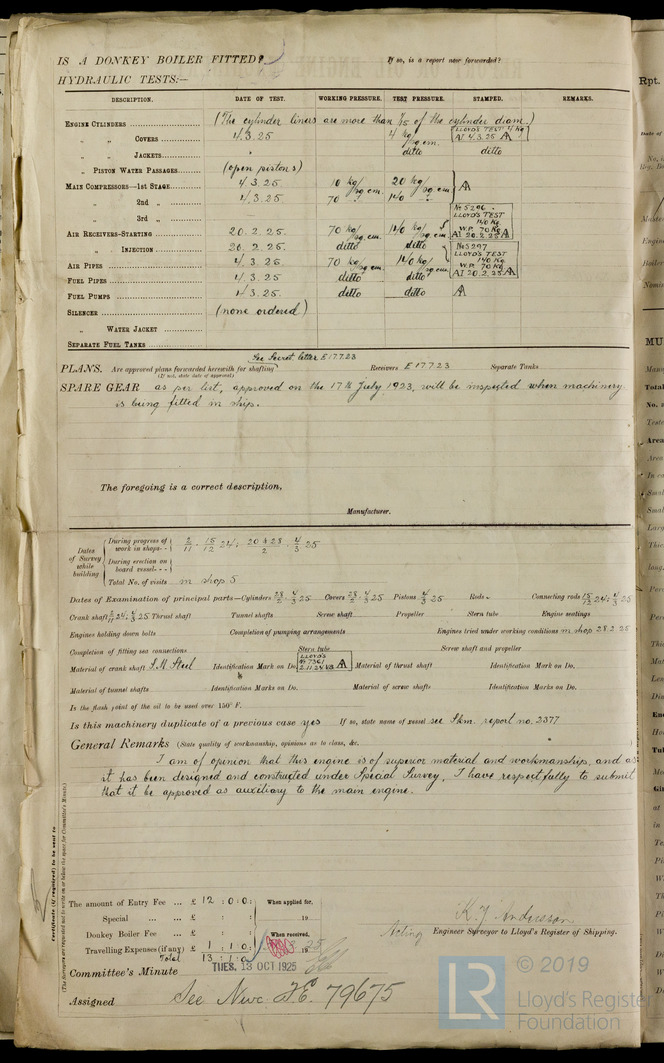 IS A DONKEY BOILER FITTED? If so, is a report now forwarded?
HYDRAULIC TESTS:—
DESCRIPTION. DATE OF TEST. WORKING PRESSURE. TEST PRESSURE. STAMPED. REMARKS.
ENGINE CYLINDERS (The cylinder liners are more than 1/15 of the cylinder diam.)
" " COVERS 4.3.25 4 kg/sq.cm. LLOYD'S TEST 4 KG AI 4.3.25
" " JACKETS ditto ditto
" PISTON WATER PASSAGES (open pistons)
MAIN COMPRESSORS—1st STAGE 4.3.25. 10 kg/sq.cm. 20 kg/sq.cm.
" 2nd " 4.3.25. 70 " 140 "
" 3rd "
AIR RECEIVERS—STARTING 20.2.25. 70 kg/sq.cm. 140 kg/sq.cm. No 5296. LLOYD'S TEST 140 KG W.P. 70 KG AI 20.2.25
" INJECTION 20.2.25. ditto ditto No 5297 LLOYD'S TEST 140 KG W.P. 70 KG AI 20.2.25
AIR PIPES 4.3.25 70 kg/sq.cm. 140 kg/sq.cm.
FUEL PIPES 4.3.25 ditto ditto
FUEL PUMPS 4.3.25. ditto ditto
SILENCER (none ordered)
" WATER JACKET
SEPARATE FUEL TANKS
See Secret letter E17723
PLANS. Are approved plans forwarded herewith for shafting Receivers E17723 Separate Tanks
(If not, state date of approval)
SPARE GEAR as per list, approved on the 17th July 1923, will be inspected when machinery
is being fitted in ship.
The foregoing is a correct description,
Manufacturer.
Dates of Survey while building
During progress of work in shops-- 2/11 . 15/12 24: 20 & 28/2 . 4/3 25
During erection on board vessel---
Total No. of visits in shop 5
Dates of Examination of principal parts—Cylinders 28/2 . 4/3 25 Covers 28/2 . 4/3 25 Pistons 4/3 25 Rods - Connecting rods 15/12 24: 4/3 25
Crank shaft 2/11 24: 4/3 25 Thrust shaft Tunnel shafts Screw shaft Propeller Stern tube Engine seatings
Engines holding down bolts Completion of pumping arrangements Engines tried under working conditions in shop 28.2.25
Completion of fitting sea connections Stern tube Screw shaft and propeller
Material of crank shaft S.M Steel Identification Mark on Do. LLOYD'S No 7361 2.11.24 Material of thrust shaft Identification Mark on Do.
Material of tunnel shafts Identification Marks on Do. Material of screw shafts Identification Marks on Do.
Is the flash point of the oil to be used over 150° F.
Is this machinery duplicate of a previous case yes If so, state name of vessel see Skm. report no. 2377
General Remarks (State quality of workmanship, opinions as to class, &c.
I am of opinion that this engine is of superior material and workmanship, and as
it has been designed and constructed under Special Survey, I have respectfully to submit
that it be approved as auxiliary to the main engine.
Certificate (if required) to be sent to
(The Surveyors are requested not to write on or below the space for Committee's Minute.)
The amount of Entry Fee ... £ 12 : 0 : 0 : When applied for,
Special ... ... £ : : 19
Donkey Boiler Fee ... £ : : When received,
Travelling Expenses (if any) £ 1 : 1 0 : 19 25
Total 13 : 1 :
K. J. Andersson
Acting Engineer Surveyor to Lloyd's Register of Shipping.
Committee's Minute TUES. 13 OCT 1925
Assigned See Nwc F.E. 79675
LR © 2019
Lloyd's Register
Foundation
Rpt.